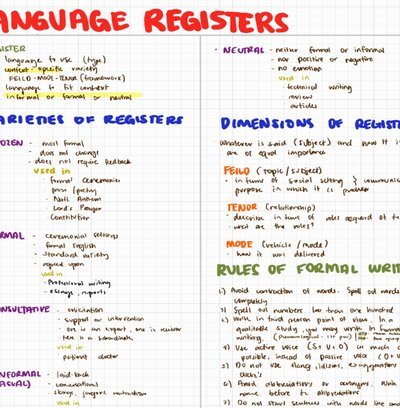 ANGUAGE REGISTERS
GISTER
language to use (type)
context-specific variety
FIELD-MODE-TENOR (framework)
language to fit context
informal or formal or neutral
ARIETIES OF REGISTERS
OZEN - most formal
- does not change
- does not require feedback
used in
- formal ceremonies
- prose/poetry
- Nat'l Anthem
- Lord's Prayer
- Constitution
RMAL - ceremonial settings
- formal English
- standard variety
- agreed upon
used in
- Professional writing
- essays, reports
NSULTATIVE - consultation
- support or intervention
- one is an expert, one is receiver
- tem is a subordinate
used in
- patient doctor
NFORMAL - laid-back
ASUAL) - conversational
- slangs,
- NEUTRAL - neither formal or informal
- nor positive or negative
- no emotion
used in
- technical writing
- review
- articles
DIMENSIONS OF REGIST
Whatever is said (subject) and how it is
are of equal importance
FEILD (topic/subject)
- in terms of social setting & communic
purpose in which it is
TENOR (relationship)
- describe in terms of roles required of
- what are the roles?
MODE (vehicle/mode)
- how it was delivered
RULES OF FORMAL WRIT
1) Avoid contraction of words. Spell out words
completely
2) Spell out numbers less than one hundred
3) Write in third person point of view. In a
qualitative study, you may write in
writing.
4) Use active voice (S+V+O) as much as
possible, instead of passive voice (O+V
5) Do not use slang, idioms, exaggerations
6) Avoid abbreviations or acronyms. Write
7) Do not start sentence with words like and